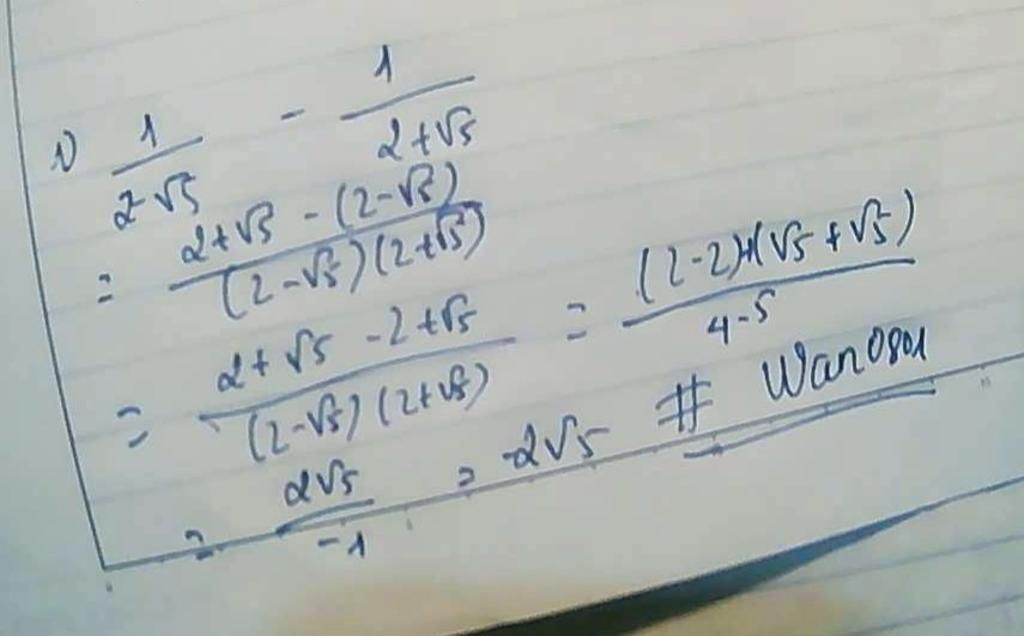 1) 1/(2-√5) - 1/(2+√5)
= (2+√5 - (2-√5))/((2-√5)(2+√5))
= (2+√5 -2+√5)/((2-√5)(2+√5)) = ((2-2)+(√5+√5))/(4-5)
= 2√5/(-1) = -2√5 # Wan0801